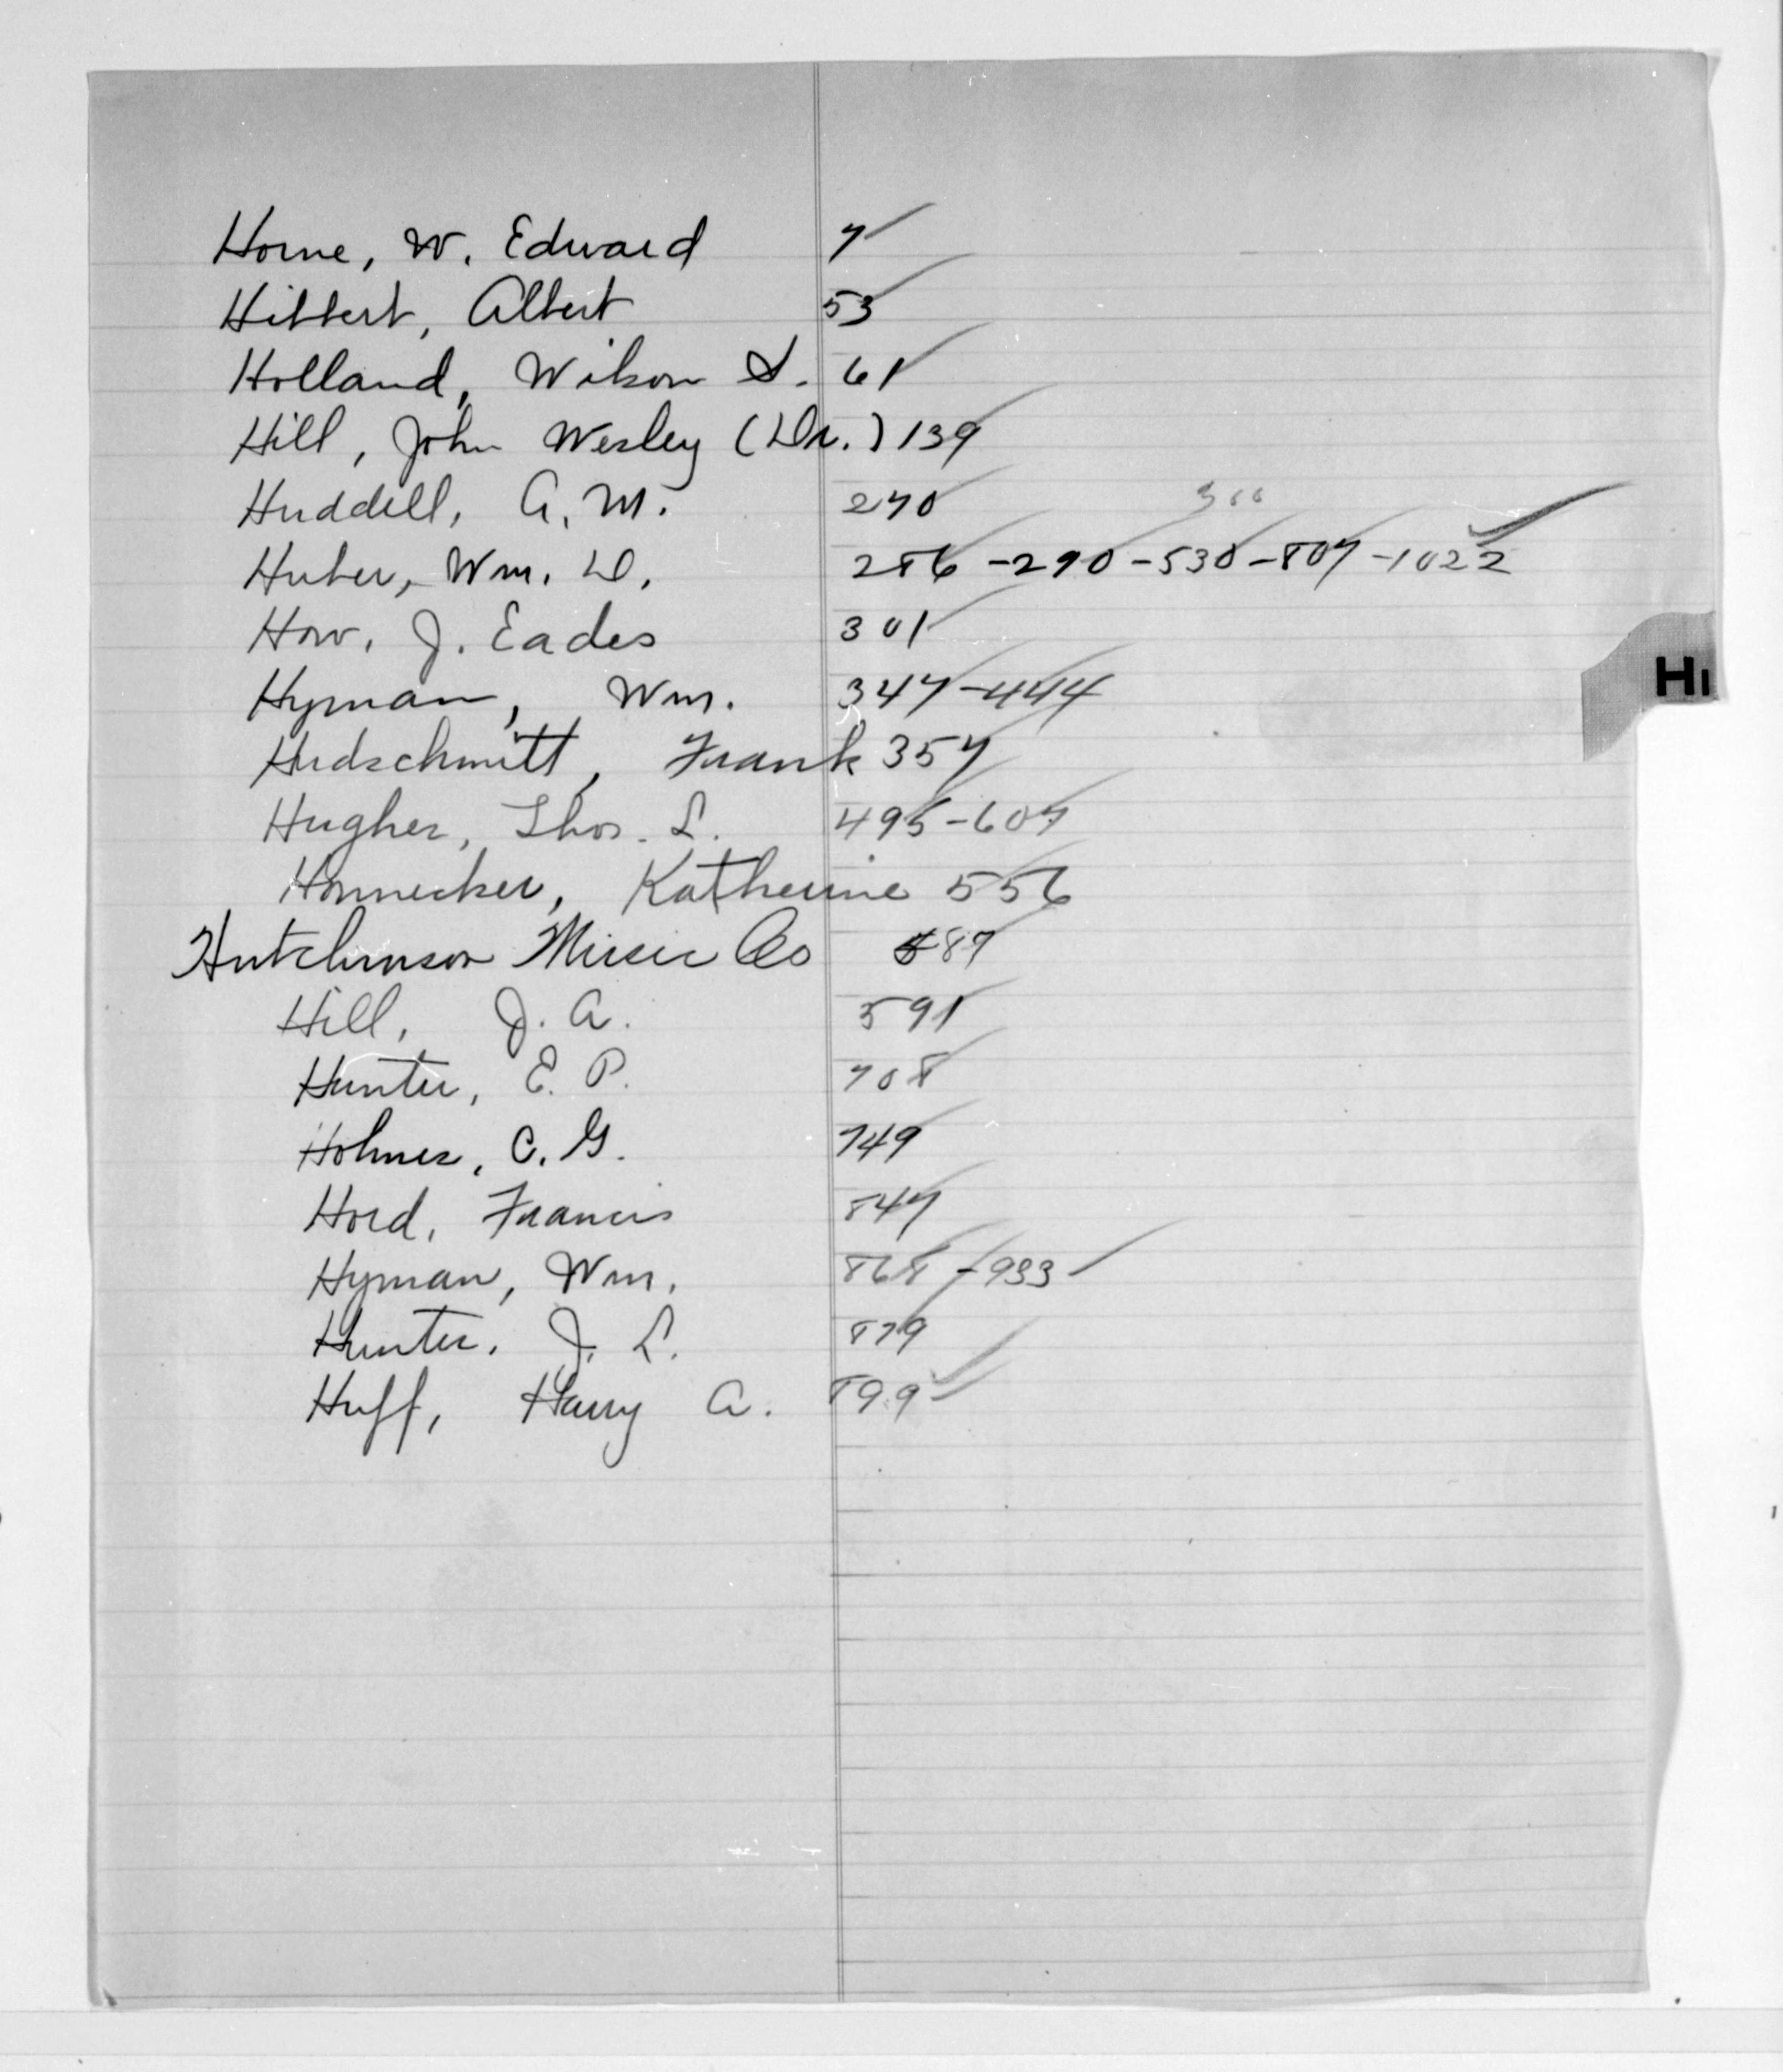 Horne, W. Edward 7
Hibbert, Albert 53
Holland, Wilson S. 61
Hill, John Wesley (Dr.) 139
Huddell, A. M. 270
300
Huber, Wm. D. 286 - 290 - 530 - 807 - 1022
How, J. Eades 301
Hyman, Wm. 347 - 444
Hudschmitt, Frank 357
Hughes, Thos. L. 495 - 607
Honnecker, Katherine 556
Hutchinson Music Co 587
Hill, J. A. 591
Hunter, E. P. 708
Holmes, C. G. 749
Hord, Francis 847
Hyman, Wm. 868 - 933
Hunter, J. L. 879
Huff, Harry A. 899
Hi